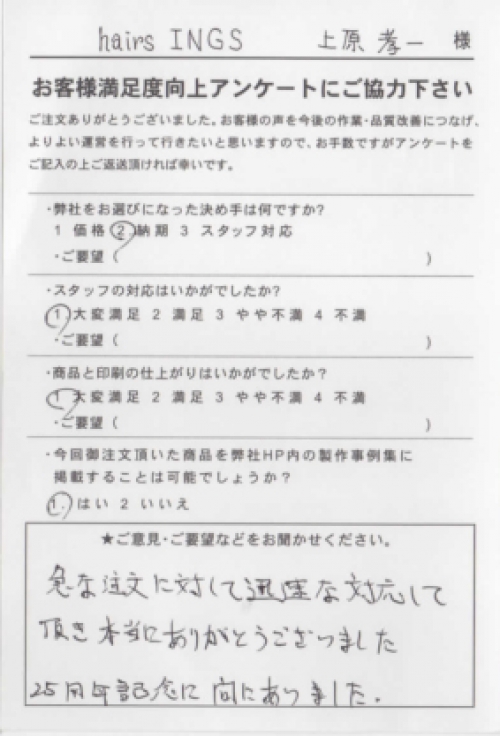 hairs INGS 上原 孝一 様
お客様満足度向上アンケートにご協力下さい
ご注文ありがとうございました。お客様の声を今後の作業・品質改善につなげ、
よりよい運営を行って行きたいと思いますので、お手数ですがアンケートを
ご記入の上ご返送頂ければ幸いです。
・弊社をお選びになった決め手は何ですか?
1 価格 2 納期 3 スタッフ対応
・ご要望 ( )
・スタッフの対応はいかがでしたか?
1 大変満足 2 満足 3 やや不満 4 不満
・ご要望 ( )
・商品と印刷の仕上がりはいかがでしたか?
1 大変満足 2 満足 3 やや不満 4 不満
・ご要望 ( )
・今回御注文頂いた商品を弊社HP内の製作事例集に
掲載することは可能でしょうか?
1. はい 2 いいえ
★ご意見・ご要望などをお聞かせください。
急な注文に対して迅速な対応して
頂き本当にありがとうございました
25周年記念に間にあいました.